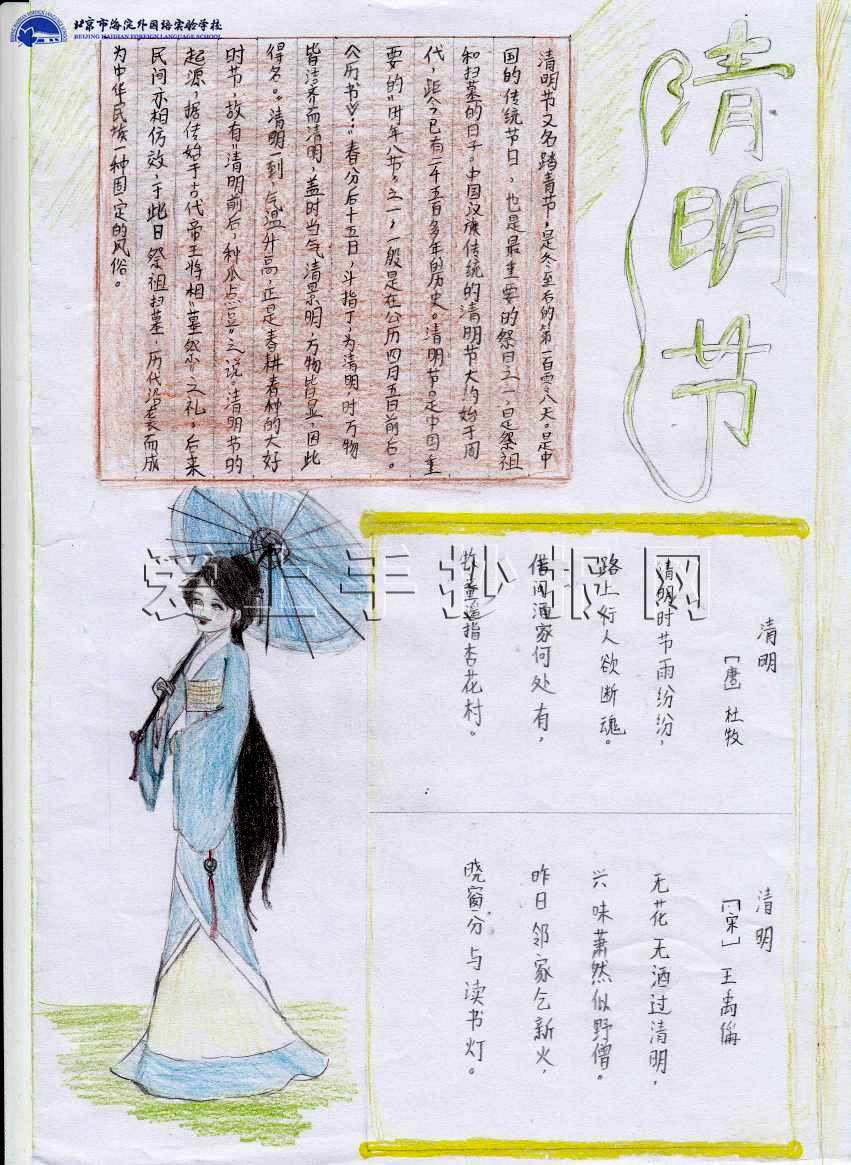 北京市海淀外国语实验学校
BEIJING HAIDIAN FOREIGN LANGUAGE SCHOOL
清明节
清明节又名踏青节,是冬至后的第一百零八天。是中
国的传统节日,也是最重要的祭日之一,是祭祖
和扫墓的日子。中国汉族传统的清明节大约始于周
代,距今已有二千五百多年的历史。清明节是中国重
要的"八节"之一,一般是在公历四月五日前后。
"春分后十五日,斗指丁,为清明,时万物
皆洁齐而清明,盖时当气清景明,万物皆显,因此
得名。"清明一到,气温升高,正是春耕春种的大好
时节,故有"清明前后,种瓜点豆"之说。清明节的
起源,据传始于古代帝王将相"墓祭"之礼,后来
民间亦相仿效,于此日祭祖扫墓,历代沿袭而成
为中华民族一种固定的风俗。
爱上手抄报网
清明
[唐] 杜牧
清明时节雨纷纷,
路上行人欲断魂。
借问酒家何处有,
牧童遥指杏花村。
清明
[宋] 王禹偁
无花无酒过清明,
兴味萧然似野僧。
昨日邻家乞新火,
晓窗分与读书灯。